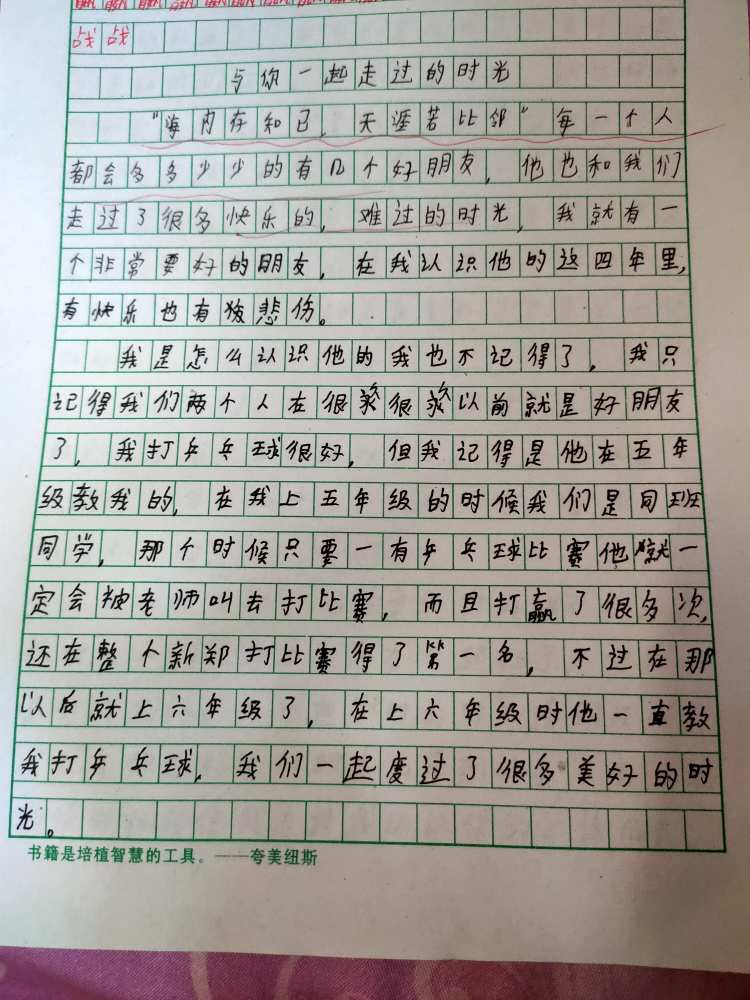 赢赢赢赢赢赢赢赢赢赢
战战
与你一起走过的时光
"海内存知己，天涯若比邻"每一个人
都会多多少少的有几个好朋友，他也和我们
走过了很多快乐的，难过的时光，我就有一
个非常要好的朋友，在我认识他的这四年里，
有快乐也有悲伤。
我是怎么认识他的我也不记得了，我只
记得我们两个人在很很以前就是好朋友
了，我打乒乓球很好，但我记得是他在五年
级教我的，在我上五年级的时候我们是同班
同学，那个时候只要一有乒乓球比赛他就一
定会被老师叫去打比赛，而且打赢了很多次，
还在整个新郑打比赛得了第一名，不过在那
以后就上六年级了，在上六年级时他一直教
我打乒乓球，我们一起度过了很多美好的时
光。
书籍是培植智慧的工具。——夸美纽斯